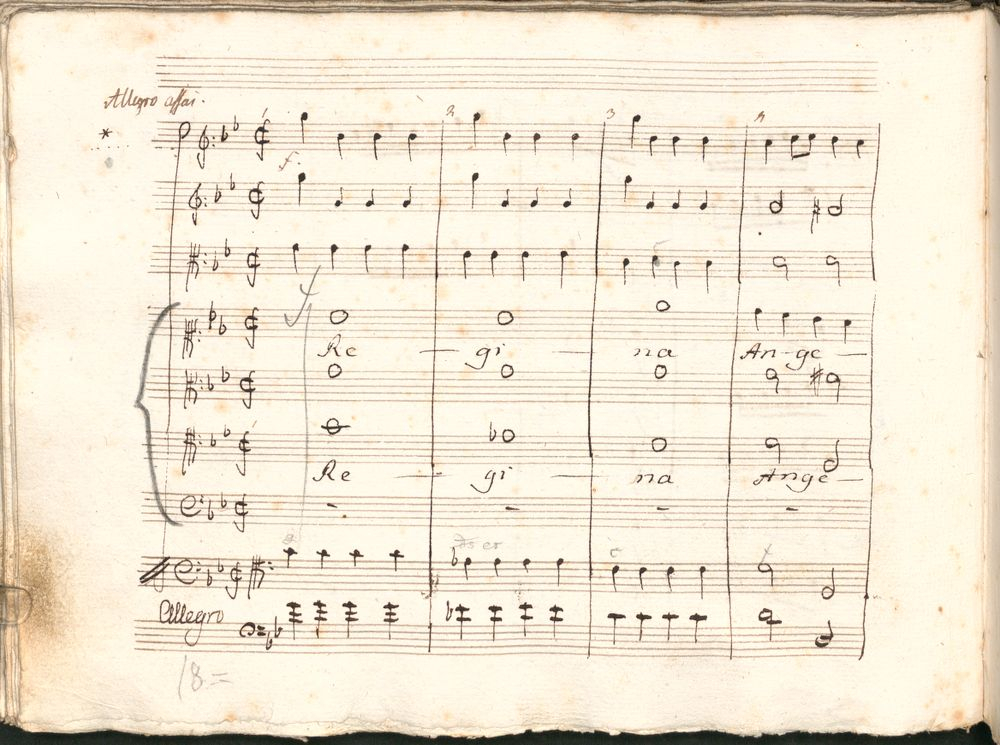 Allegro assai.
2 3 4
f.
Re gi na An-ge
Re gi na Ange
Allegro
18=